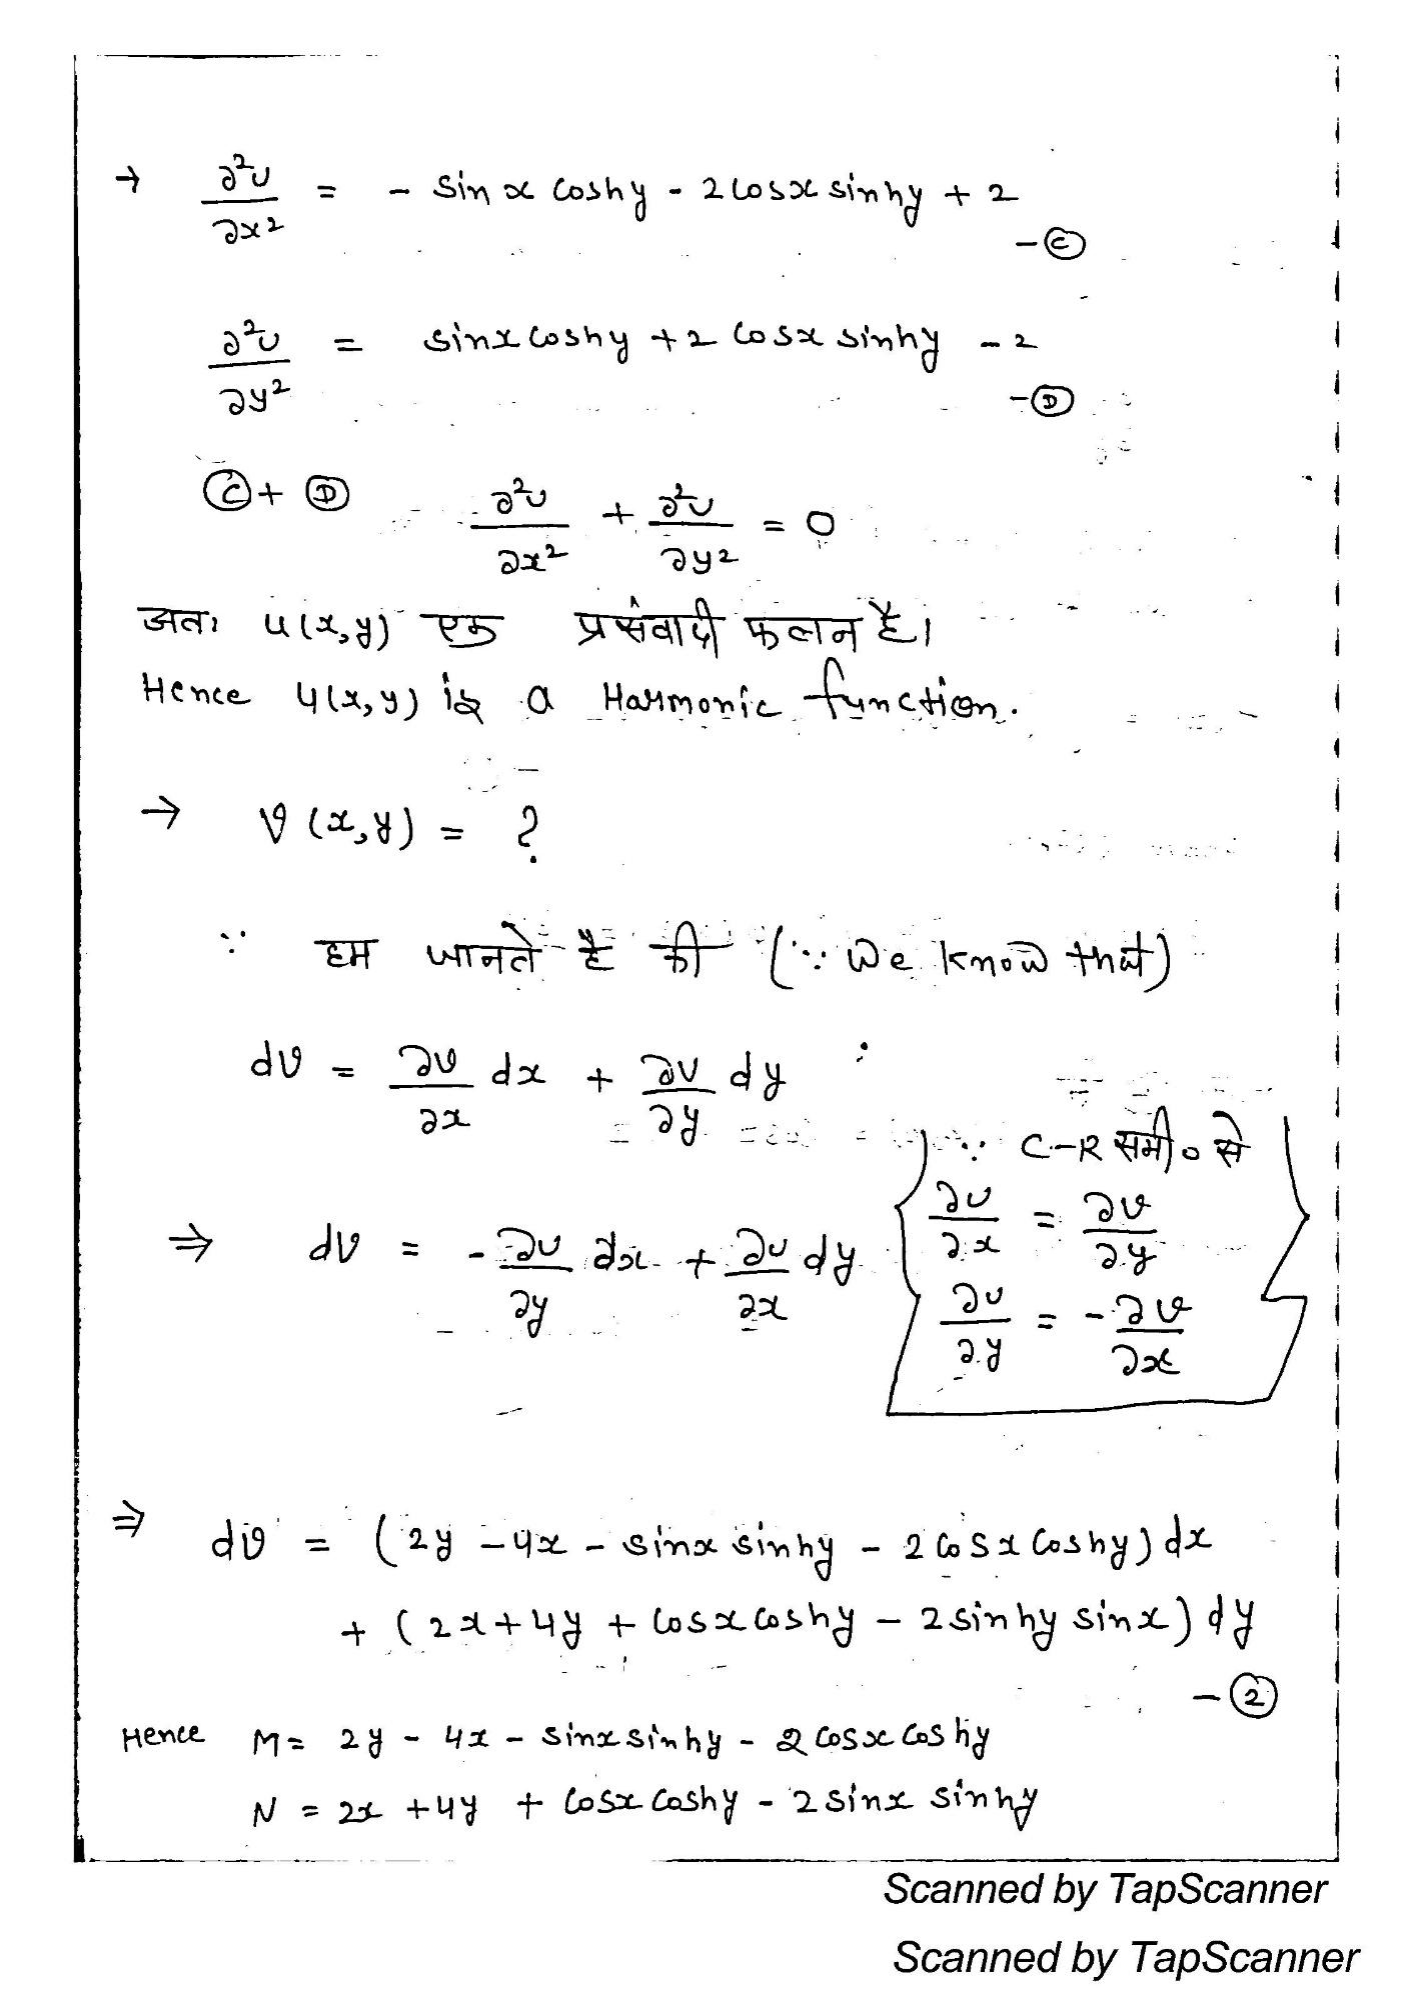 → ∂²u/∂x² = - sinx coshy - 2cosx sinhy + 2
-Ⓒ
∂²u/∂y² = sinx coshy + 2 cosx sinhy - 2
-Ⓓ
Ⓒ + Ⓓ ∂²u/∂x² + ∂²u/∂y² = 0
अतः u(x,y) एक प्रसंवादी फलन है।
Hence u(x,y) is a Harmonic function.
→ v(x,y) = ?
∵ हम जानते है की (∵ We know that)
dv = ∂v/∂x dx + ∂v/∂y dy
∵ C-R समी० से
∂u/∂x = ∂v/∂y
⇒ dv = -∂u/∂y dx + ∂u/∂x dy
∂u/∂y = -∂v/∂x
⇒ dv = (2y - 4x - sinx sinhy - 2cosx coshy) dx
+ (2x + 4y + cosx coshy - 2sinhy sinx) dy
-②
Hence M = 2y - 4x - sinx sinhy - 2 cosx coshy
N = 2x + 4y + cosx coshy - 2 sinx sinhy
Scanned by TapScanner
Scanned by TapScanner